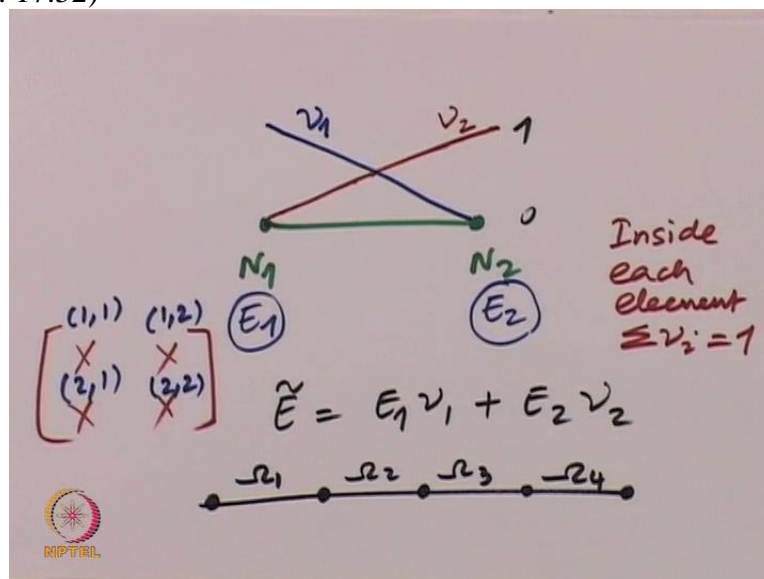 . 17.32)
ν1 ν2 1
0
N1 N2
E1 E2
Inside
each
eleenent
Σνi = 1
(1,1) (1,2)
× ×
(2,1) (2,2)
× ×
Ẽ = E1 ν1 + E2 ν2
Ω1 Ω2 Ω3 Ω4
NPTEL